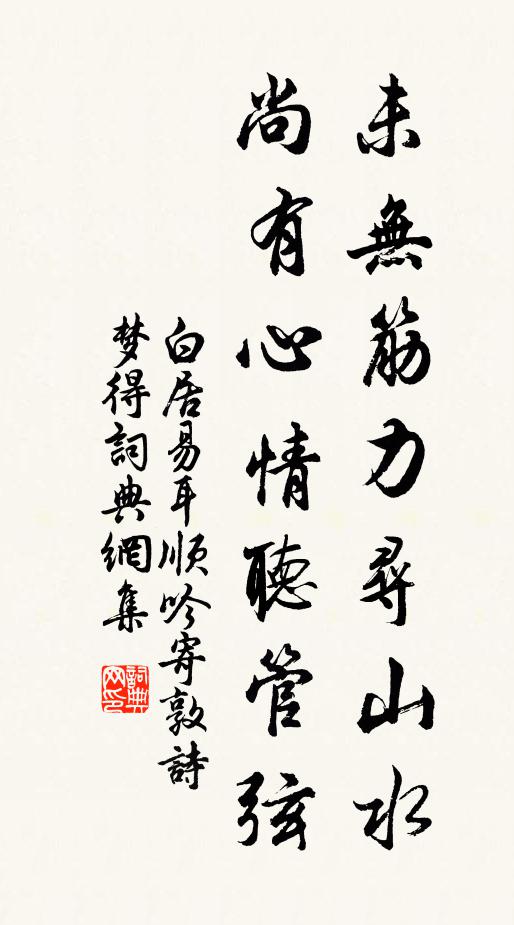 未無筋力尋山水
尚有心情聽管弦
白居易耳順吟寄敦詩
梦得詞典網集
詞典网印